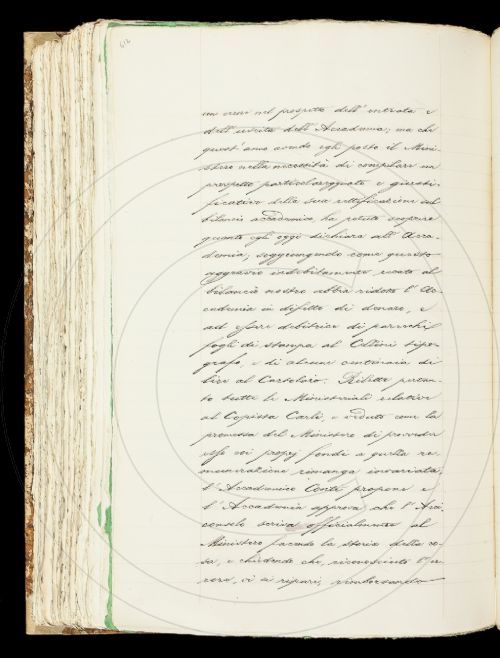 612
un error nel prospetto dell' entrata e
dell' uscita dell' Accademia; ma che
quest' anno avendo egli posto il Mini-
stero nella necessità di compilare un
prospetto particolareggiato e giusti-
ficativo della sua rettificazione sul
bilancio accademico, ha potuto scoprire
quanto egli oggi dichiara all' Acca-
demia; soggiungendo come questo
aggravio indebitamente recato al
bilancio nostro abbia ridotto l' Ac-
cademia in difetto di denaro, e
ad essere debitrice di parecchi
fogli di stampa al Cellini tipo-
grafo, e di alcune centinaia di
lire al Cartolaro. Rilette pertan-
to tutte le Ministeriali relative
al Copista Carli, e veduto come la
promessa del Ministero di provveder
esso coi propri fondi a quella re-
munerazione rimanga invariata,
l' Accademico Conti propone e
l' Accademia approva che l' Arci-
consolo scriva officialmente al
Ministero facendo la storia della co-
sa, e chiedendo che, riconosciuto l' er-
rore, vi si ripari, rimborsando